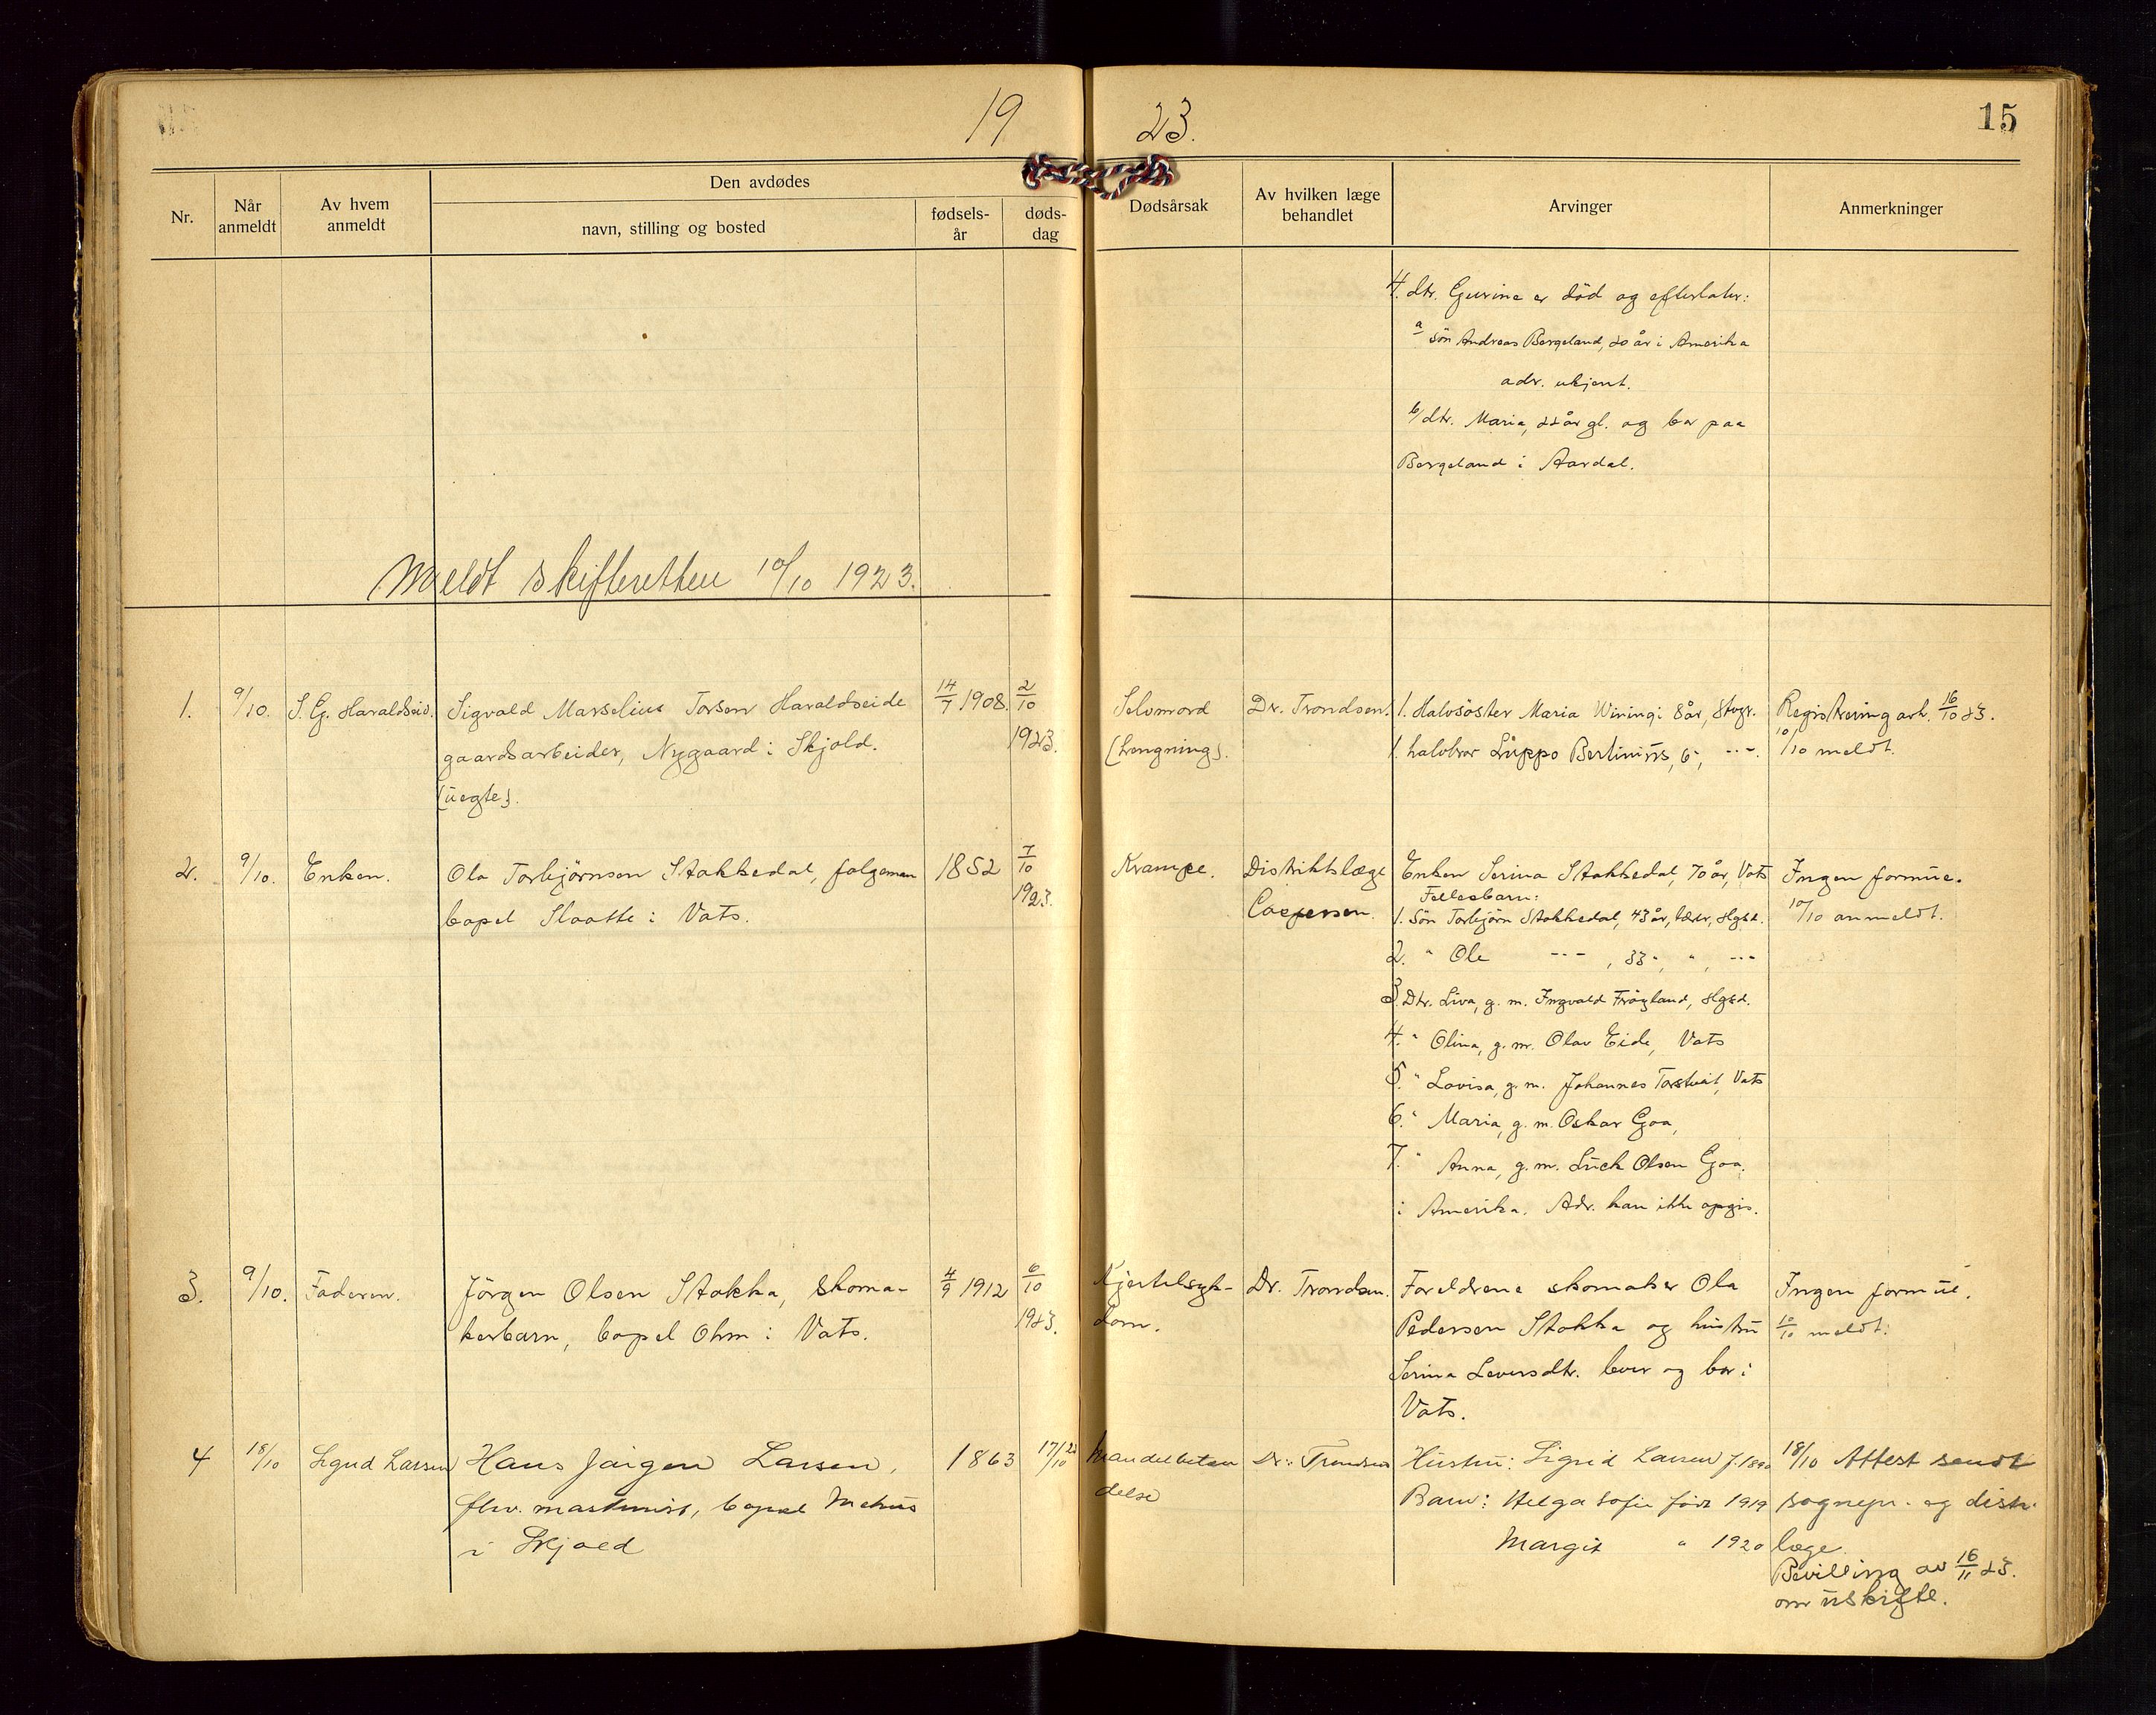 19 23.
15
Nr.
Når anmeldt
Av hvem anmeldt
Den avdødes
navn, stilling og bosted
fødsels-år
døds-dag
Dødsårsak
Av hvilken læge behandlet
Arvinger
Anmerkninger
4. dtr. Gurine er död og efterlater:
a sön Andreas Bergeland, 20 år i Amerika
adr. ukjent.
b/ dtr. Maria, 22 år gl. og bor paa
Bergeland i Aardal.
Meldt skifteretten 10/10 1923.
1. 9/10. S. G. Haraldseid. Sigvald Marselius Torsen Haraldseide 14/7 1908. 2/10 Selvmord Dr. Trondsen. 1. Halvsöster Maria Wining: 8 år, Stvgr. Registrering avh. 16/10 23.
gaardsarbeider, Nygaard i Skjold. 1923. (hengning). 1. halvbror Lüppo Bertinius, 6", --". 10/10 meldt.
(uegte).
2. 9/10. Enken. Ola Torbjörnsen Stakkedal, folgeman 1852 7/10 Krampe. Distriktslæge Enken Serina Stakkedal, 70 år, Vats Ingen formue.
bopel Slaatte i Vats. 1923. Caspersen. Fellesbarn: 10/10 anmeldt.
1. Sön Torbjörn Stakkedal, 43 år, Hgsd.
2. " Ole --- , 33 ", ", ---
3. Dtr. Liva, g. m. Ingvald Fröyland, Hgsd.
4. " Olina, g. m. Olav Eide, Vats
5. " Lovisa, g. m. Johannes Torstveit, Vats
6. " Maria, g. m. Oskar Goa,
7. " Anna, g. m. Lück Olsen Goa.
i Amerika. Adr. kan ikke opgis.
3. 9/10. Faderen. Jörgen Olsen Stakka, Skoma- 4/9 1912 6/10 Kjertelsyk- Dr. Trondsen. Foreldrene skomaker Ola Ingen formue.
kerbarn, bopel Ohm i Vats. 1923. dom. Pedersen Stakka og hustru 10/10 meldt.
Serina Leversdtr. lever og bor i
Vats.
4 18/10 Sigrid Larsen Hans Jørgen Larsen, 1863 17/10 23 Mandelbeten Dr. Trondsen Hustru: Sigrid Larsen f. 1890 18/10 Attest sendt
flw. maskinist, bopel Mehus delse Barn: Helga Sofie född 1919 sognepr. og distr.
i Skjold Margit " 1920 læge.
Bevilling av 16/11 23.
om uskifte.